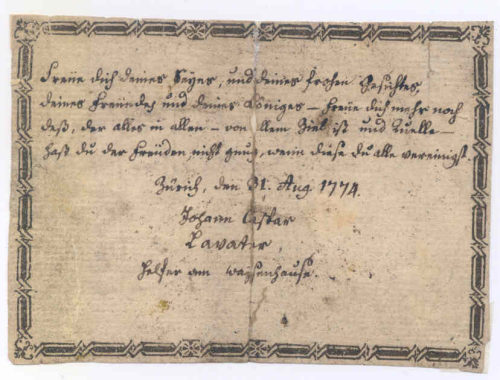 Freüe dich deines Seyns, und deines frohen Gesichtes,
deines Freündes und deines Königes – freüe dich mehr noch
deß, der alles in allen – von allem Ziel ist und Quelle –
hast du der Freüden nicht gnug, wenn diese du alle vereinigst.
Zürich, den 31. Aug 1774.
Johann Caspar
Lavater,
Helfer am Waysenhause.